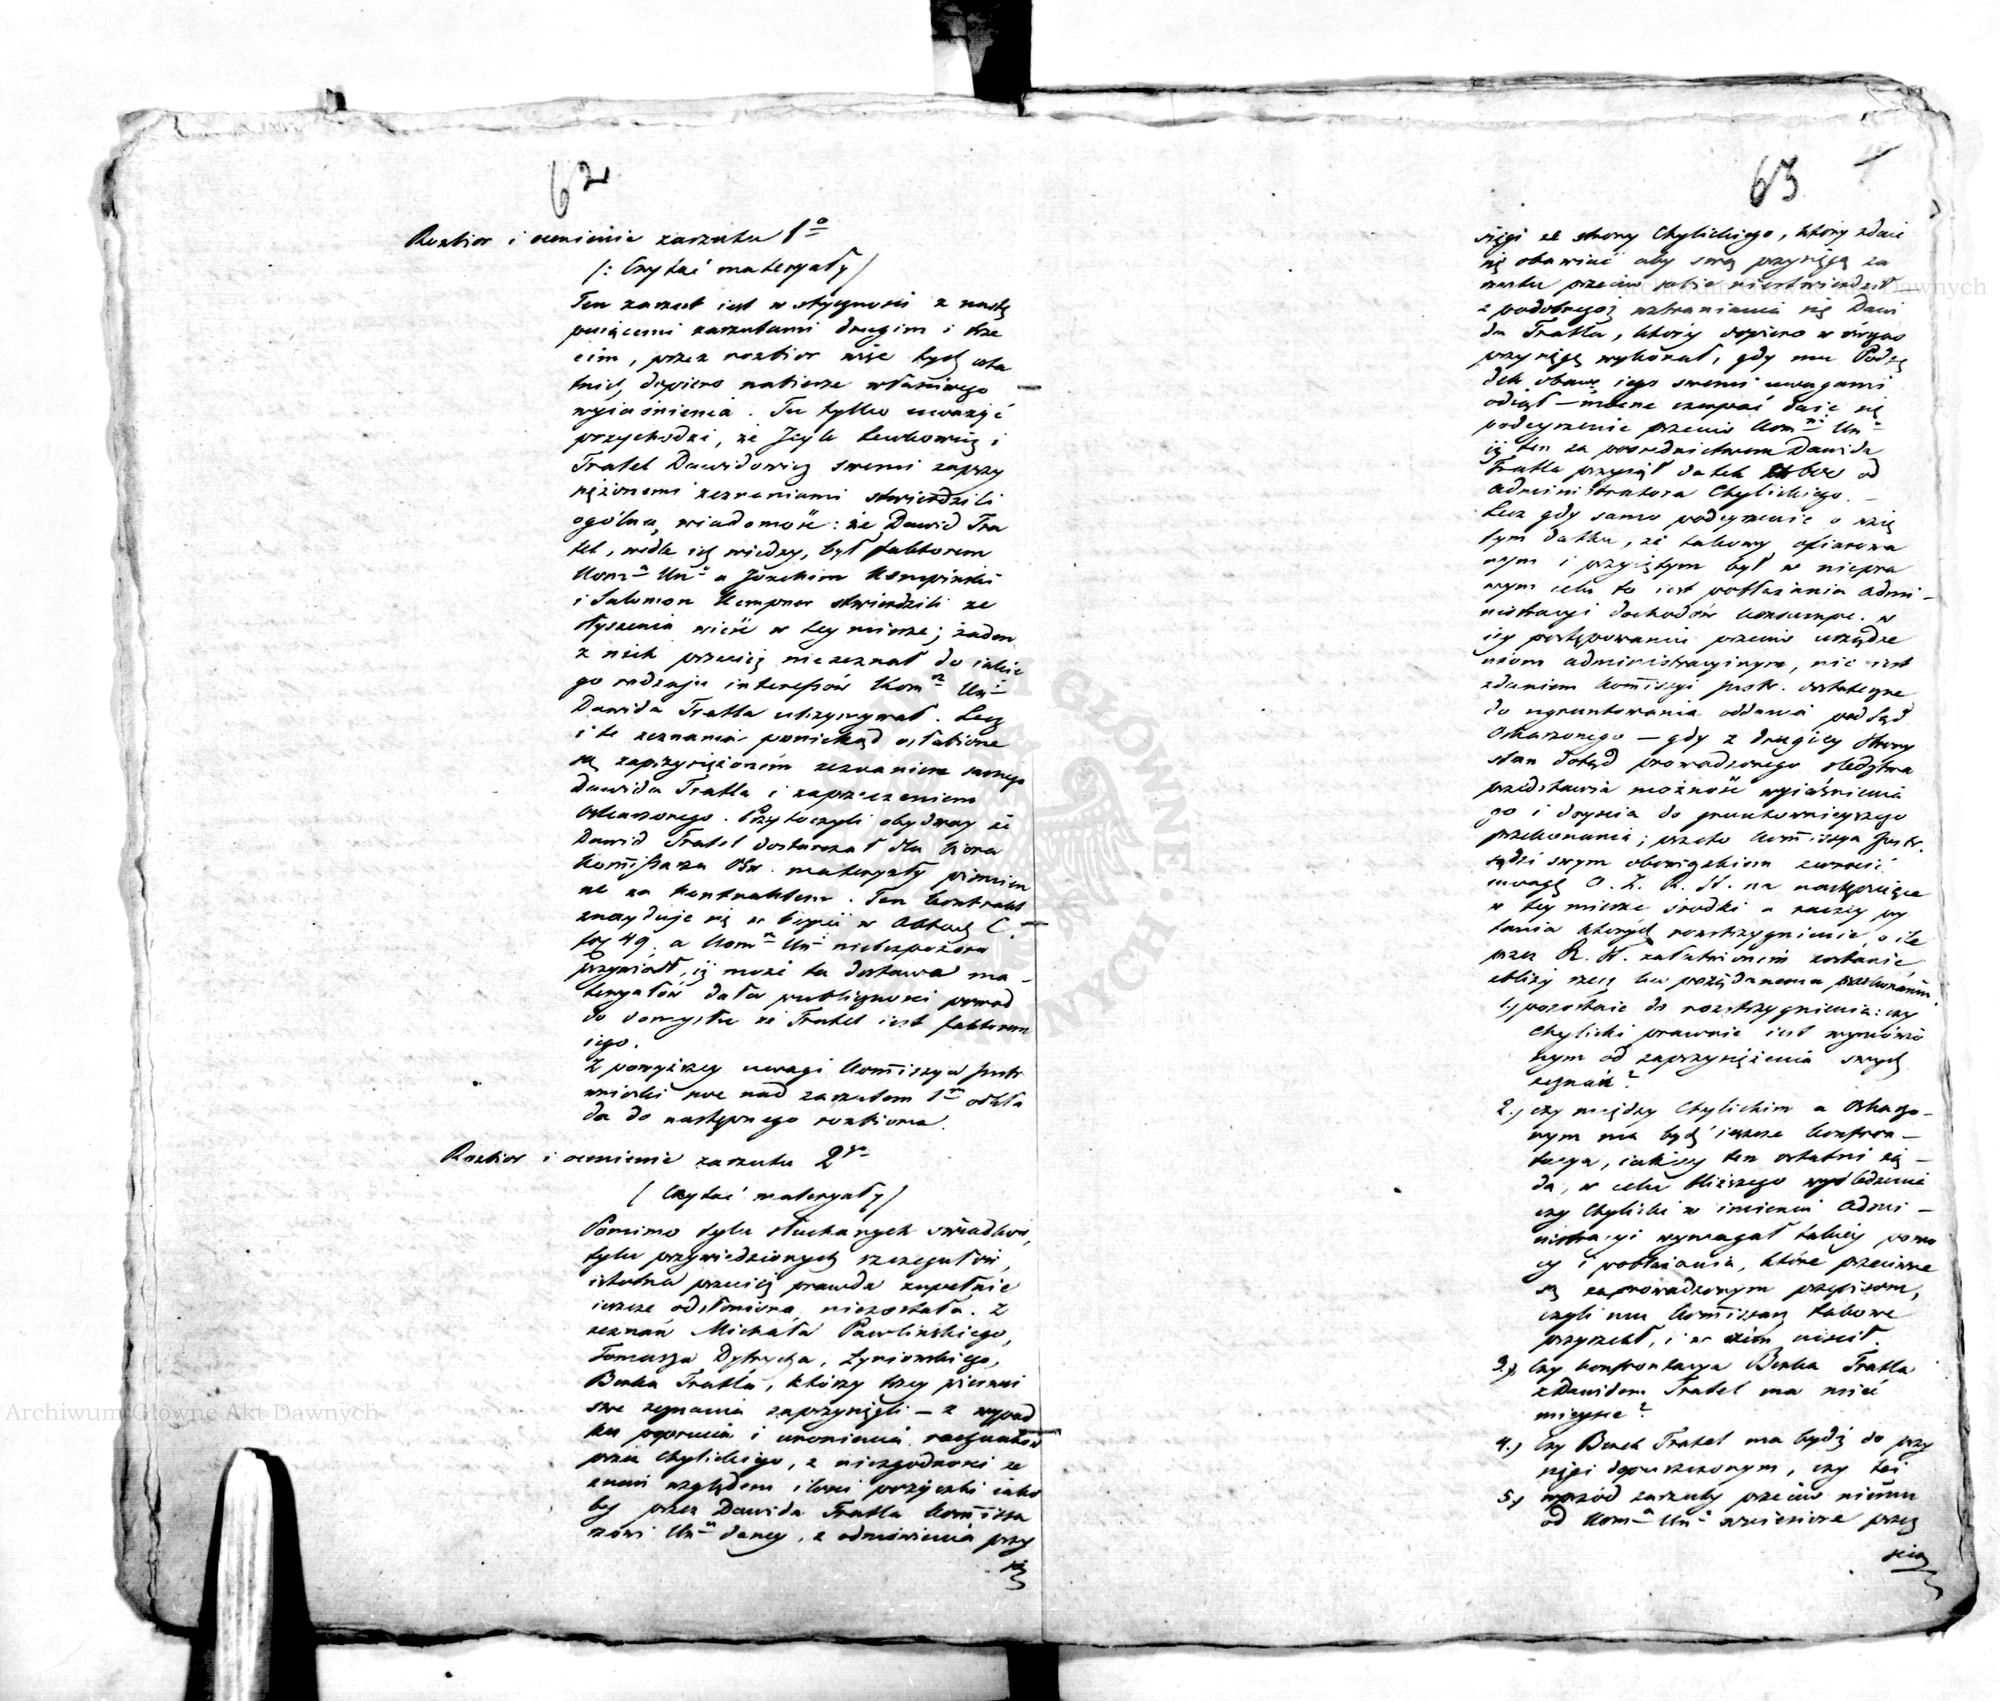 62
Rozbior i ocenienie zarzutu 1º
/: Czytać materyały /
Ten zarzut iest w stycznosci z nastę
puiącemi zarzutami drugim i trze
cim, przez rozbior więc tych osta
tnich, dopiero nabierze właściwego
wyiaśnienia. Tu tylko uważyć
przychodzi, że Icyk Lewkowicz i
Tratel Dawidowicz swemi zaprzy
siężonemi zeznaniami stwierdzili
ogólną wiadomość: że Dawid Tra
tel, wedle ich wiedzy, był faktorem
Kom Un a Joachim Kempinski
i Salomon Kempner stwierdzili ze
słyszenia wieść w tey mierze; żaden
z nich przecież nie zeznał do iakie
go rodzaju interessów Kom Un
Dawida Tratla utrzymywał. Lecz
i te zeznania poniekąd osłabione
są zaprzysiężonem zeznaniem samego
Dawida Tratla i zaprzeczeniem
Oskarżonego. Przytoczyli obydway że
Dawid Tratel dostarczał dla biora
Kommissarza Obw. materyały piśmien
ne za kontraktem. Ten kontrakt
znayduje się w kopii w aktach C.
fol 49. a Kom Un niebezpożera
przyniosł, iż może ta dostawa ma-
teryałów dała publicznosci powod
do domysłu że Tratel iest faktorem
iego.
Z powyższey uwagi Kommissya Instr.
wnioski swe nad zarzutem 1 odkła
da do następnego rozbioru.
Rozbior i ocenienie zarzutu 2
/ Czytać materyały /
Pomimo tylu słuchanych świadków,
tylu przywiedzionych szczegułów,
istotna przecież prawda zupełnie
ieszcze odsłoniona niezostała. Z
zeznań Michała Pawlińskiego,
Tomasza Dytrycha, Zyniewskiego,
Berka Tratla, którzy trzey pierwsi
swe zeznania zaprzysięgli – z wypad
ku poprucia i uronienia rachunków
przez Chylickiego, z niezgodności ze
znań względem ilości pożyczki iako
by przez Dawida Tratla Kommissa
rzowi Un daney, z odmówienia przy
się
63
sięgi ze strony Chylickiego, który zdaie
się obawiać aby swą przysięgą za
rzutu przeciw sobie niestwierdził
z podobnegoż wzbraniania się Dawi
da Tratla, który dopiero w
przysięgę wykonał, gdy mu Podsę
dek obawę iego swemi uwagami
odiął – można czerpać daie się
podeyrzenie przeciw Kom Un
iż ten za pośrednictwem Dawida
Tratla przyiął datek 600 od
administratora Chylickiego. –
Lecz gdy samo podeyrzenie o wzię
tym datku, że takowy ofiarowa
nym i przyiętym był w niepra
wym celu to iest pobłażania admi-
nistracyi dochodów konsumpc. w
iey postępowaniu przeciw urządze
niom administracyinym, nie iest
zdaniem Kommissyi Instr. dostateczne
do ugruntowania oddania pod Sąd
Oskarżonego – gdy z drugiey strony
stan dotąd prowadzonego śledztwa
przedstawia możność wyiaśnienia
go i doyścia do gruntownieyszego
przekonania; przeto Kommissya Instr.
sądzi swym obowiązkiem zwrócić
uwagę O. Z. R. St. na następuiące
w tey mierze środki a raczey py
tania których rozstrzygnienie, o ile
przez R. St. załatwionem zostanie
zbliży rzecz ku pożądanemu przekonaniu.
1., pozostaie do rozstrzygnienia: czy
Chylicki prawnie iest wymówio
nym od zaprzysiężenia swych
zeznań?
2., czy między Chylickim a Oskarżo-
nym ma bydź ieszcze konfron-
tacya, iakiey ten ostatni żą-
da, w celu bliższego wyśledzenia
czy Chylicki w imieniu Admi-
nistracyi wymagał takiey pomo
cy i pobłażania, które przeciwne
są zaprowadzonym przepisom,
czyli mu Kommissarz takowe
przyrzekł, i w czem uiścił.
3., Czy konfrontacya Berka Tratla
z Dawidem Tratel ma mieć
mieysce?
4., Czy Berek Tratel ma bydź do przy
sięgi dopuszczonym, czy też
5., wprzód zarzuty przeciw niemu
od Kom Un wzniesione przez